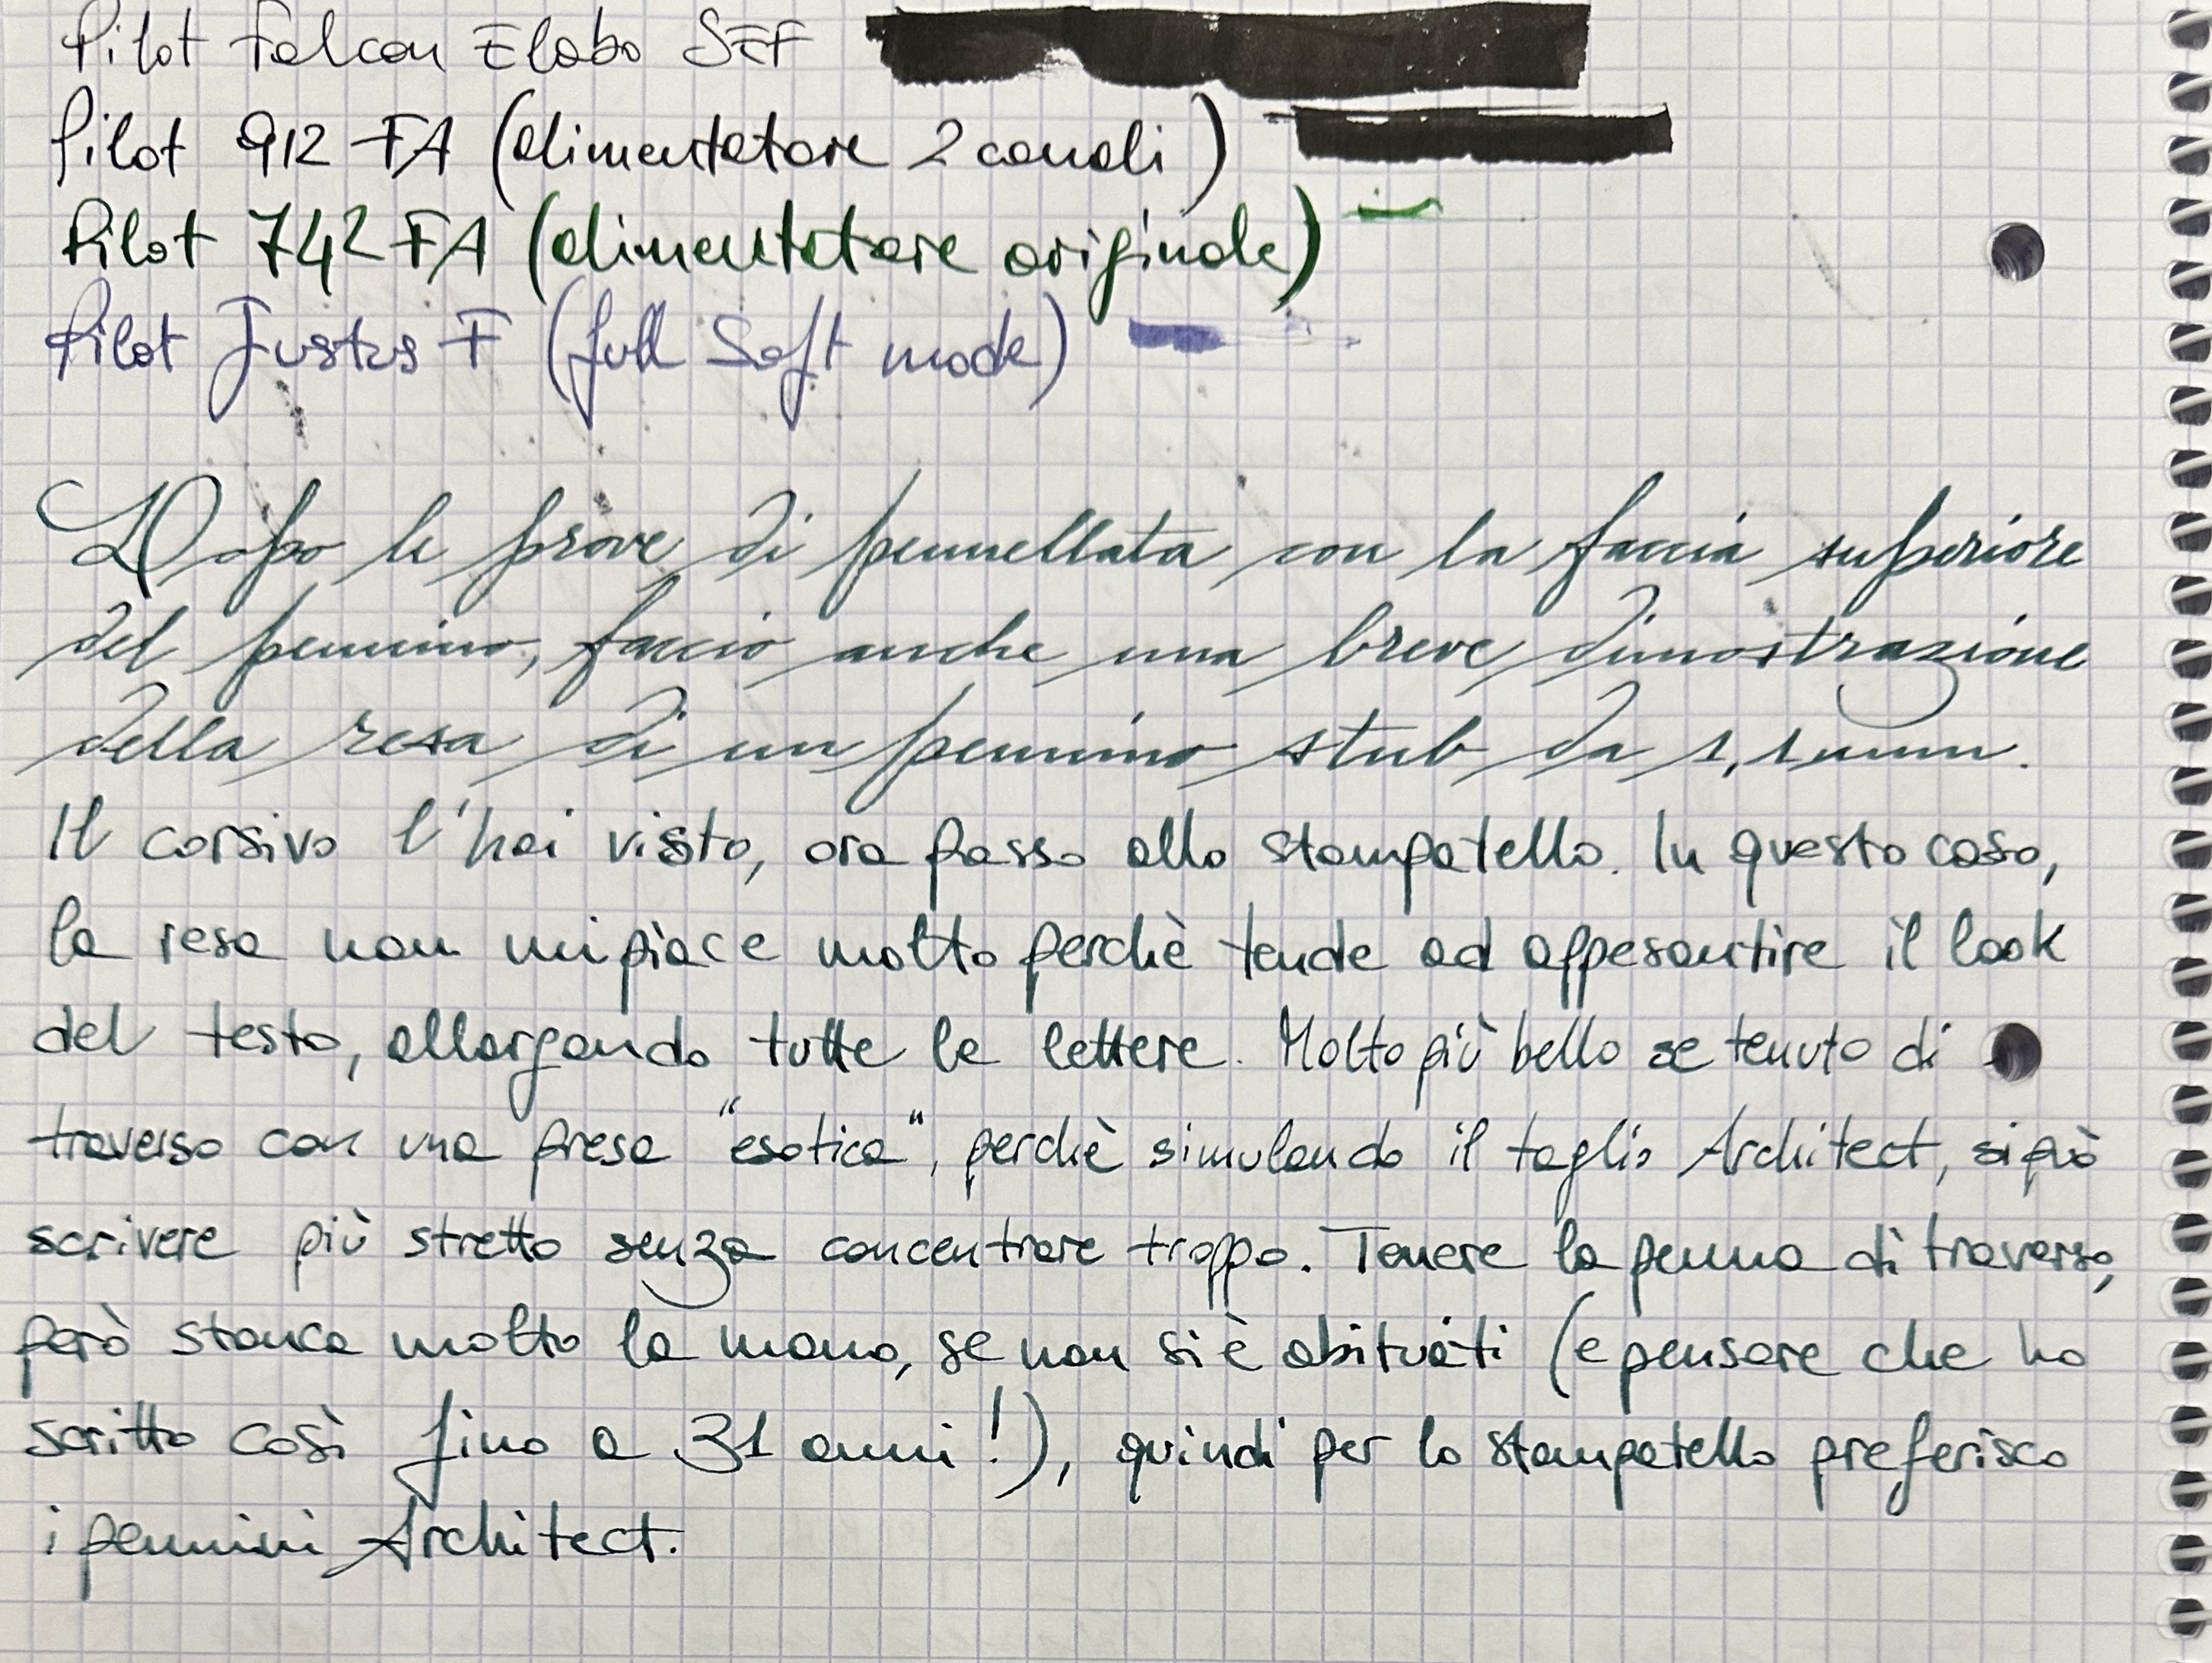 Pilot Falcon Elabo SEF
Pilot 912 FA (alimentatore 2 canali)
Pilot 742 FA (alimentatore originale)
Pilot Justus F (full Soft mode)
Dopo le prove di pennellata con la faccia superiore
del pennino, faccio anche una breve dimostrazione
della resa di un pennino stub da 1,1 mm.
Il corsivo l'hai visto, ora passo allo stampatello. In questo caso,
la resa non mi piace molto perchè tende ad appesantire il look
del testo, allargando tutte le lettere. Molto più bello se tenuto di
traverso con una presa "esotica", perchè simulando il taglio Architect, si può
scrivere più stretto senza concentrare troppo. Tenere la penna di traverso,
però stanca molto la mano, se non si è abituati (e pensare che ho
scritto così fino a 31 anni!), quindi per lo stampatello preferisco
i pennini Architect.